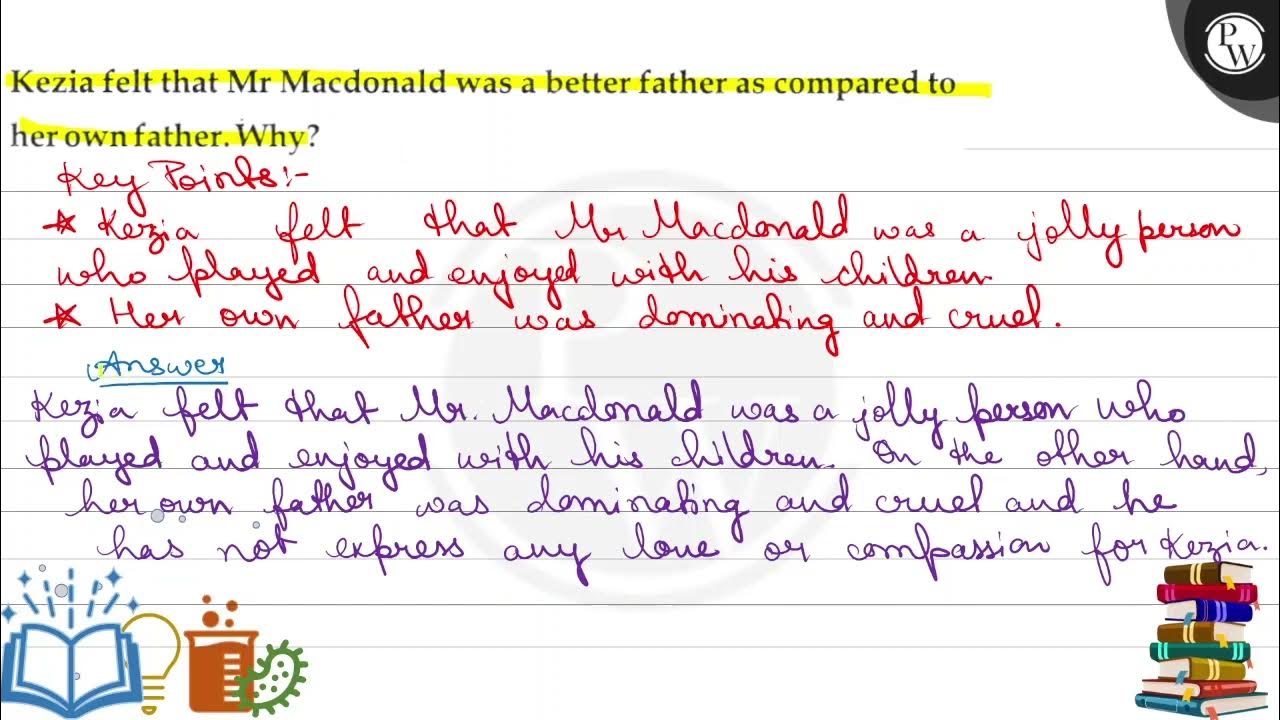 PW
Kezia felt that Mr Macdonald was a better father as compared to
her own father. Why?
Key Points:-
★ Kezia felt that Mr Macdonald was a jolly person
who played and enjoyed with his children.
★ Her own father was dominating and cruel.
Answer
Kezia felt that Mr. Macdonald was a jolly person who
played and enjoyed with his children. On the other hand,
her own father was dominating and cruel and he
has not express any love or compassion for Kezia.